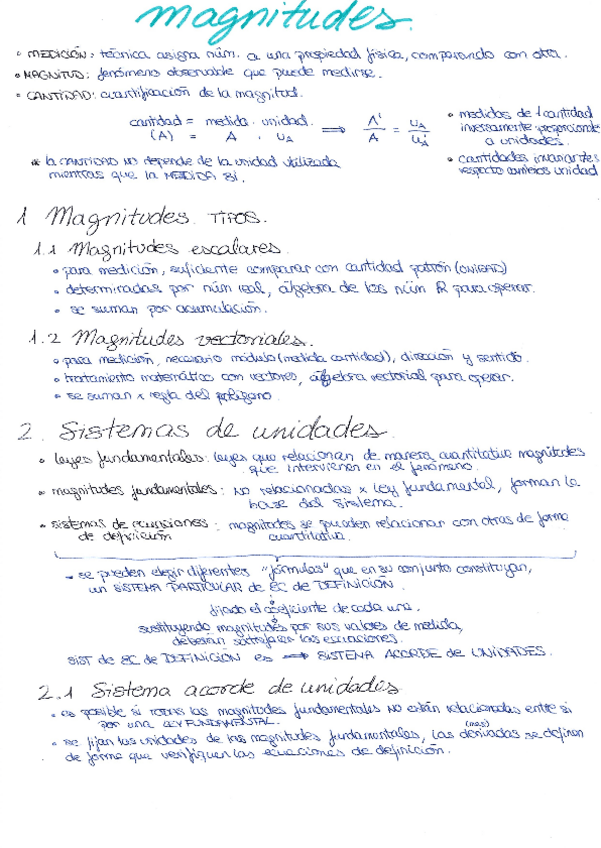 magnitudes.
• MEDICIÓN: técnica asigna núm. a una propiedad física, comparando con otra.
• MAGNITUD: fenómeno observable que puede medirse.
• CANTIDAD: cuantificación de la magnitud.
cantidad = medida · unidad.
(A) = A · UA ⟹ A'/A = UA/U'A
• medidas de 1 cantidad
inversamente proporcionales
a unidades.
* la CANTIDAD NO depende de la unidad utilizada
mientras que la MEDIDA SÍ.
• cantidades invariantes
respecto cambios unidad
1 Magnitudes. TIPOS.
1.1 Magnitudes escalares.
• para medición, suficiente comparar con cantidad patrón (UNIDAD)
• determinadas por núm real, álgebra de los núm R para operar.
• se suman por acumulación.
1.2 Magnitudes vectoriales.
• para medición, necesario módulo (medida cantidad), dirección y sentido.
• tratamiento matemático con vectores, álgebra vectorial para operar.
• se suman x regla del polígono.
2. Sistemas de unidades.
• leyes fundamentales: leyes que relacionan de manera cuantitativa magnitudes
que intervienen en el fenómeno.
• magnitudes fundamentales: NO relacionadas x ley fundamental, forman la
base del sistema.
• sistemas de ecuaciones
de definición : magnitudes se pueden relacionar con otras de forma
cuantitativa.
→ se pueden elegir diferentes "fórmulas" que en su conjunto constituyan,
un SISTEMA PARTICULAR de EC de DEFINICIÓN.
fijado el coeficiente de cada una.
sustituyendo magnitudes por sus valores de medida,
deberán satisfacer las ecuaciones.
SIST de EC de DEFINICIÓN es ⟹ SISTEMA ACORDE de UNIDADES.
2.1 Sistema acorde de unidades.
• es posible si todas las magnitudes fundamentales NO están relacionadas entre sí
por una LEY FUNDAMENTAL.
• se fijan las unidades de las magnitudes fundamentales, las derivadas se definen
de forma que verifiquen las ecuaciones de definición.